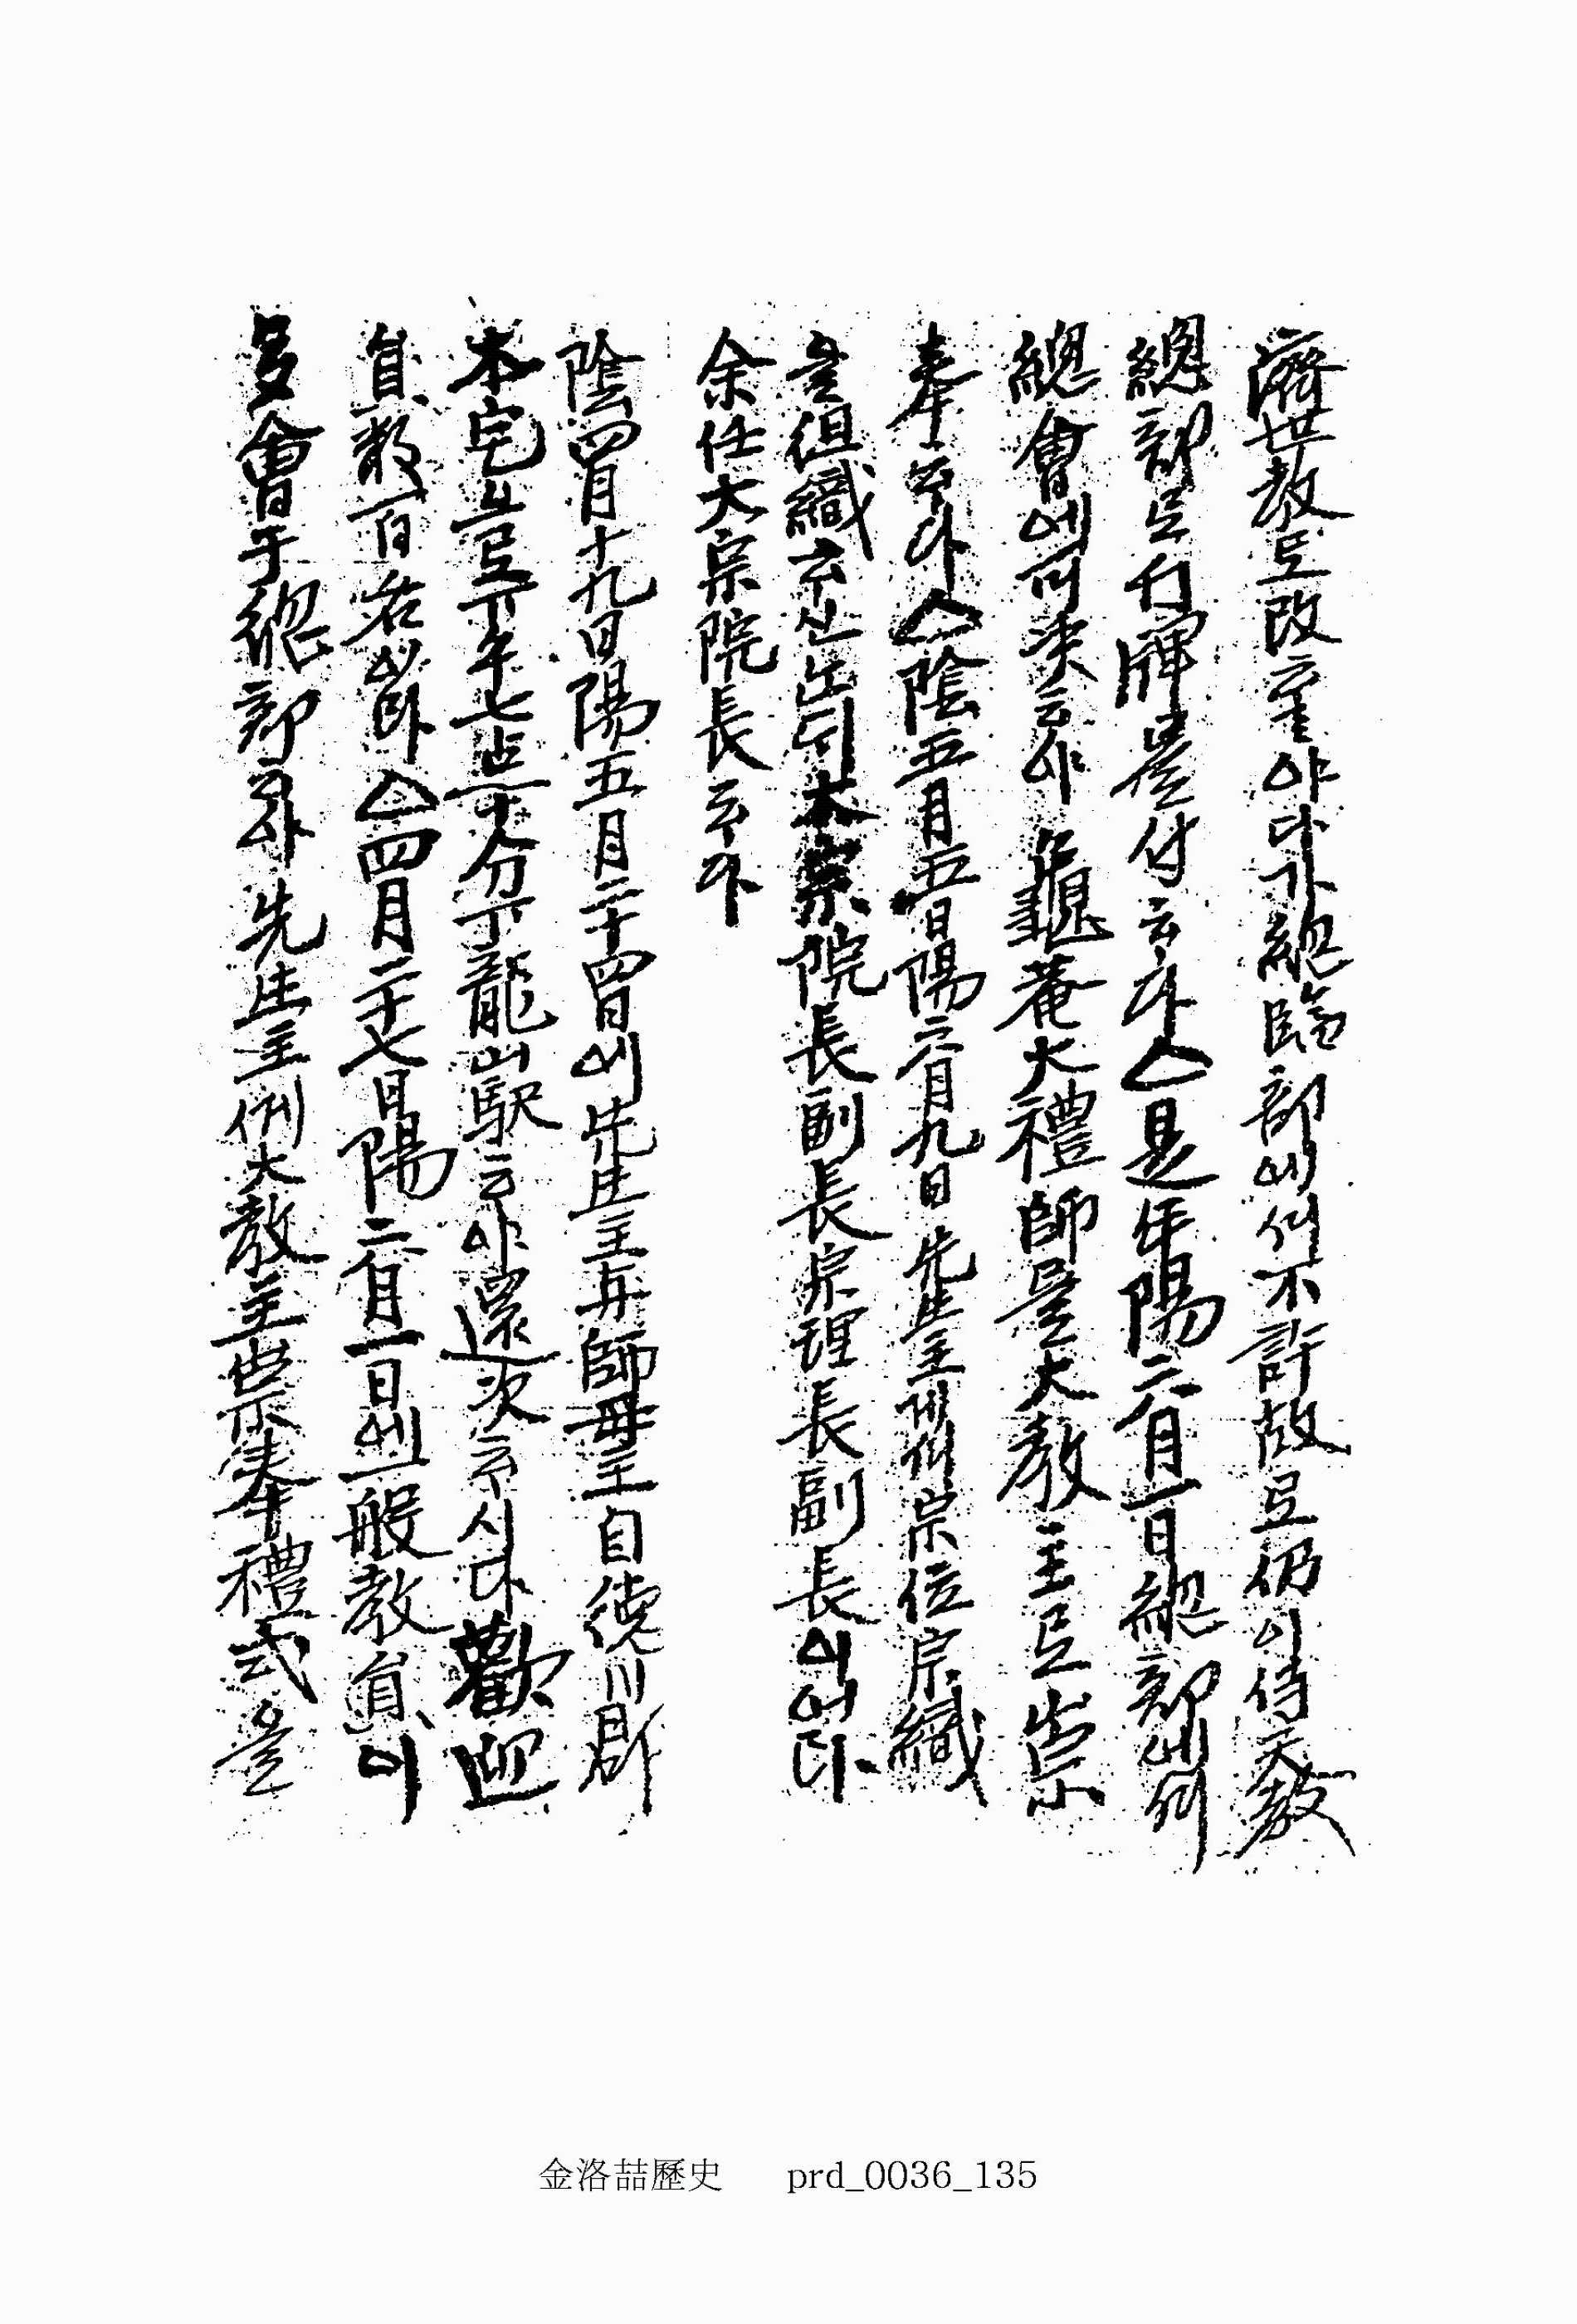 濟世敎로改호야다가總臨部에셔不許故로仍이侍天敎
總部로行牌를付하다△是年陽六月一日總部에셔
總會에可决하야龜菴大禮師를大敎主로崇
奉하다△陰五月五日陽六月九日先生主께셔宗位宗織
을組織하신는 本宗院長副長宗理長副長이이다
余任大宗院長하다
陰四月十九日陽五月二十四日에先生主與師母主自德川郡
本宅으로下午七点十分丁龍山駅하야還次하시다歡迎
員數百名이다△四月二十七日陽六月一日에一般敎員이
多會于總部하야先生主例大敎主崇奉禮式을
金洛喆歷史 prd_0036_135